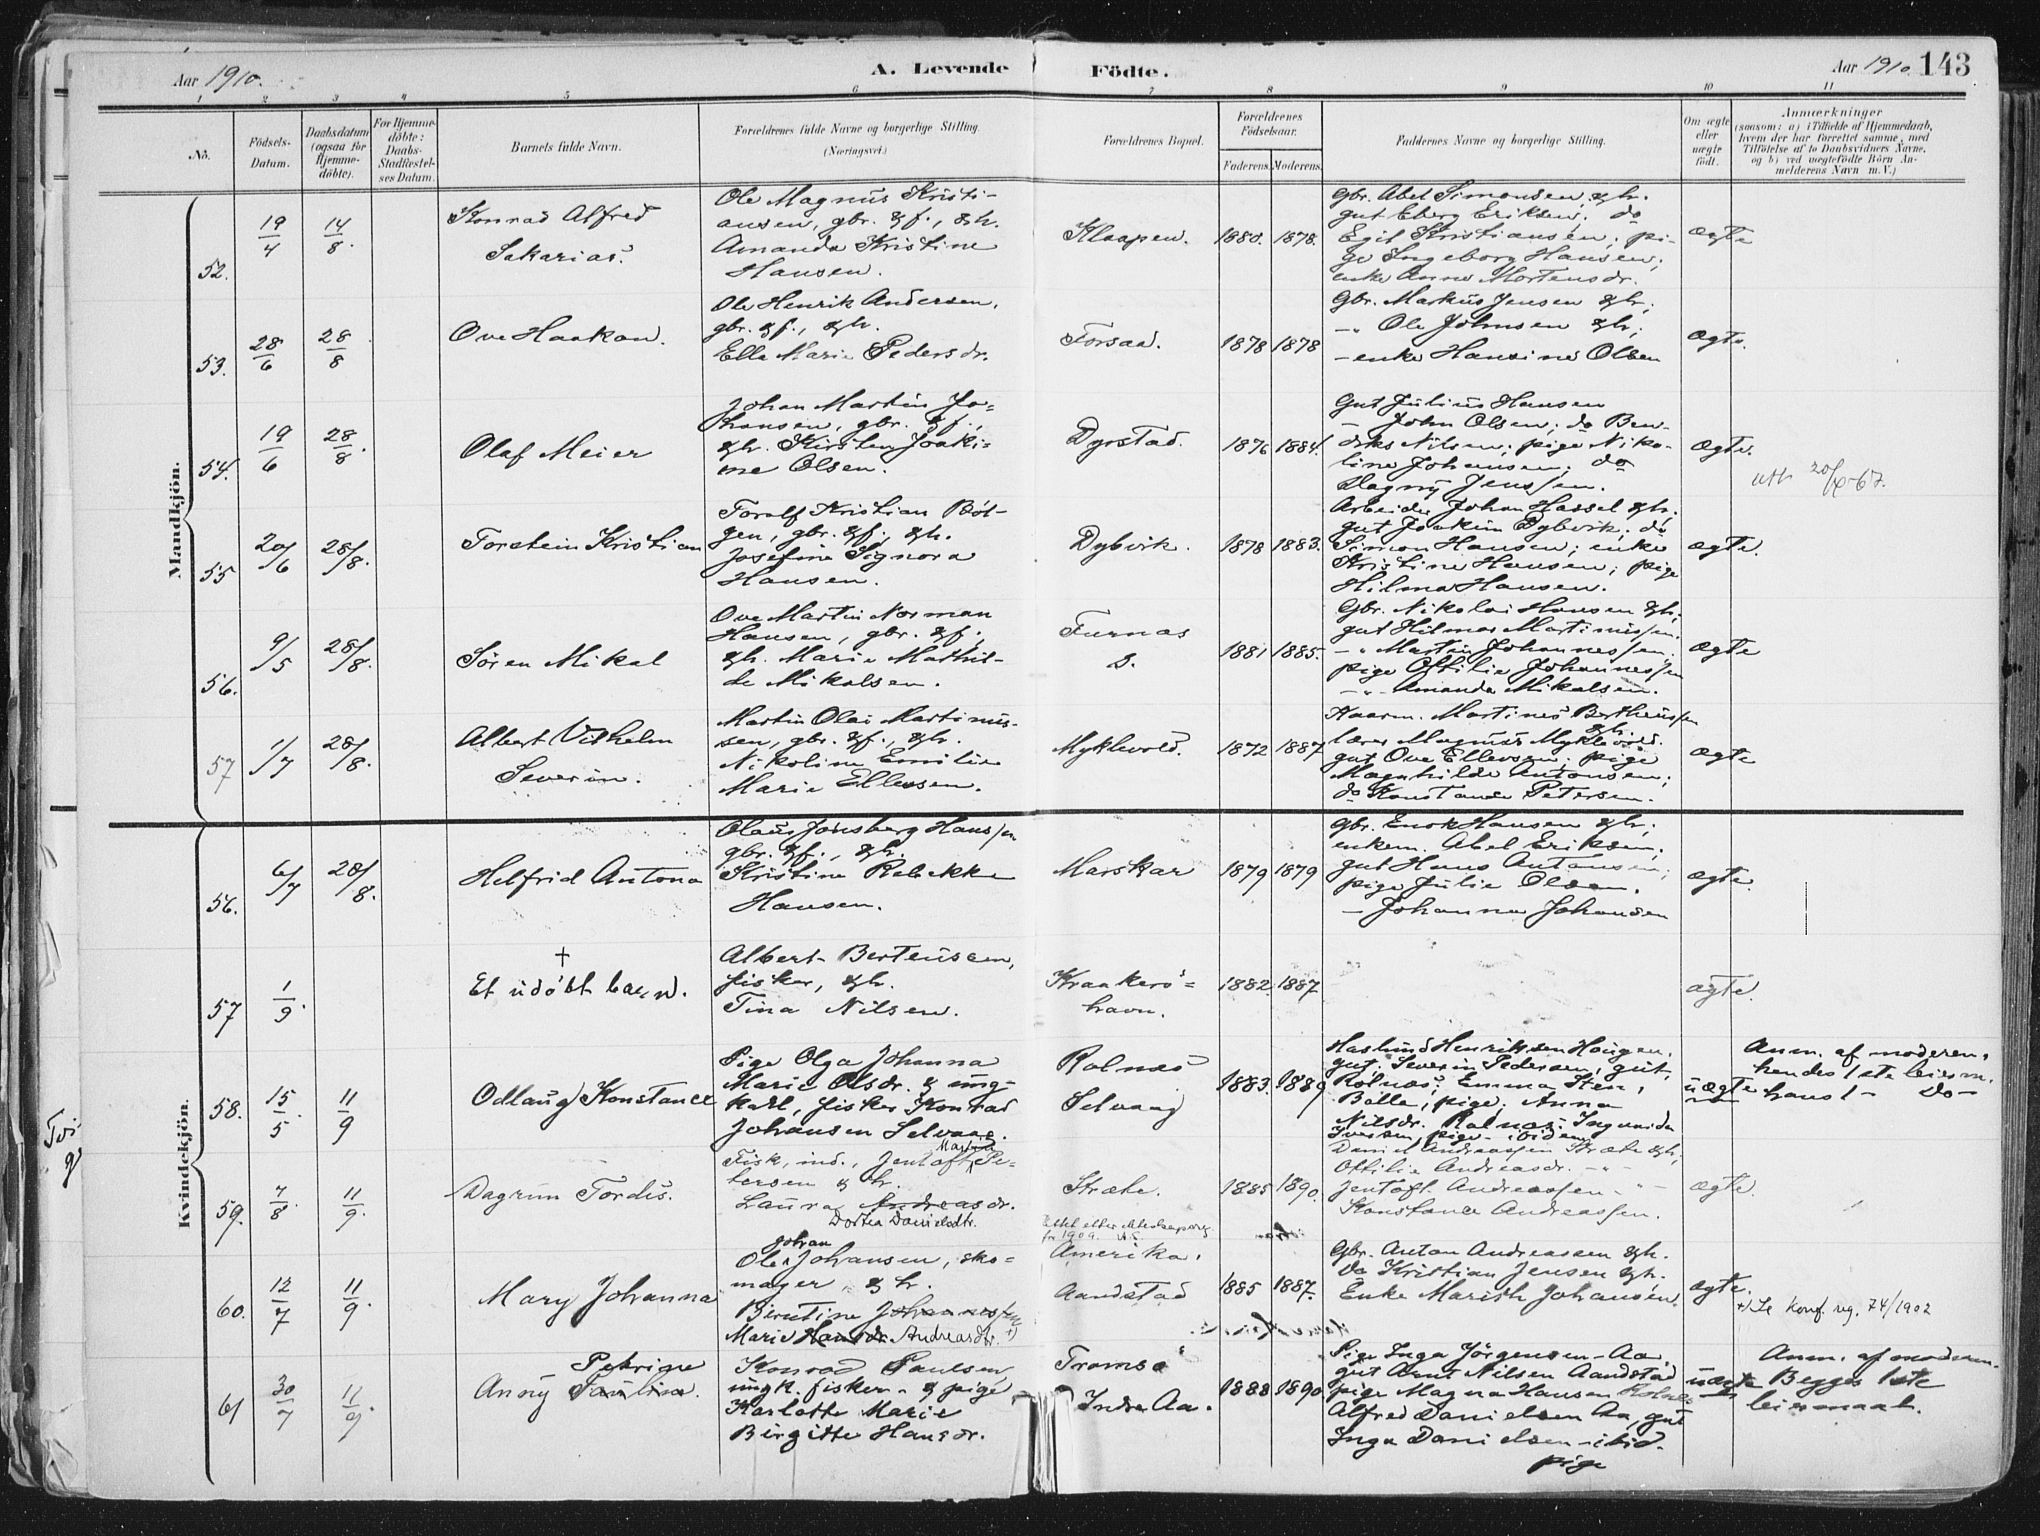 Aar 1910.
A. Levende Födte.
Aar 1910. 143
1 2 3 4 5 6 7 8 9 10 11
No.
Födsels-Datum.
Daabsdatum (ogsaa for Hjemme-döbte).
For Hjemme-döbte: Daabs-Stadfæstel-ses Datum.
Barnets fulde Navn.
Forældrenes fulde Navne og borgerlige Stilling. (Næringsvei.)
Forældrenes Bopæl.
Forældrenes Födselsaar.
Faderens. Moderens.
Faddernes Navne og borgerlige Stilling.
Om ægte eller uægte födt.
Anmærkninger
(saasom: a) i Tilfælde af Hjemmedaab,
hvem der har forrettet samme, med
Tilföielse af to Daabsvidners Navne,
og b) ved uægtefödte Börn An-
melderens Navn m. V.)
Mandkjön.
52. 19/4 14/8
Konrad Alfred
Sakarias.
Ole Magnus Kristi-
ansen, gbr. & f., & h.
Amanda Kristine
Hansen.
Klaapen.
1880. 1878.
Gbr. Abel Simonsen & h.
gut Eberg Eriksen; do
Egil Kristiansen; pi-
ge Ingeborg Hansen;
enke Anne Mortensdr.
ægte
53. 28/6 28/8
Ove Haakon.
Ole Henrik Andersen,
gbr. & f., & h.
Ella Marie Pedersdr.
Forsaa.
1878 1878
Gbr. Markus Jensen & h;
-"- Ole Johnsen & h;
- enke Hansine Olsen
ægte.
54. 19/6 28/8
Olaf Meier
Johan Martin Jo-
hansen, gbr. & f.,
& h. Kirsten Joaki-
me Olsen.
Dyrstad.
1876 1884.
Gut Julius Hansen
- John Olsen; do Ben-
diks Nilsen; pige Niko-
line Johansen; do
Dagny Jenssen.
ægte.
utt. 20/X-67.
55 20/6 28/8.
Torstein Kristian
Toralf Kristian Böl-
gen, gbr. & f., & h.
Josefine Signora
Hansen.
Dybvik.
1878 1883.
Arbeider Johan Hassel & h;
gut Joakim Dybvik; do
Simon Hansen; enke
Kristine Hansen; pige
Hilma Hansen.
ægte.
56. 9/5 28/8.
Sören Mikal
Ove Martin Norman
Hansen, gbr. & f.,
& h. Marie Mathil-
de Mikalsen.
Furnæs
s.
1881 1885.
Gbr. Nikolai Hansen & h;
gut Hilmar Martinussen.
-"- Martin Johannessen.
pige Ottilie Johannessen
-"- Amanda Mikalsen.
ægte
57 1/7 28/8.
Albert Vilhelm
Severin.
Martin Olai Martinus-
sen, gbr. & f., & h.
Nikoline Emilie
Marie Ellevsen.
Myklevold.
1872 1887
Kaarm. Martines Bertheussen
& h.
lærer Magnus Myklevold.
gut Ove Ellevsen; pige
Magnhilde Antonsen;
do Konstance Petersen.
ægte
Kvindekjön.
56. 6/7 28/8.
Helfrid Antona
Olaus Jonsberg Hanssen
gbr. & f., & h.
Kristine Rebekke
Hansen.
Marskar
1879 1879
Gbr. Enok Hansen & h;
enkem. Abel Eriksen;
gut Hans Antonsen;
pige Julie Olsen.
- Johanna Johansen
ægte.
57 1/9.
†
Et udöbt barn.
Albert Berteussen,
fisker, & h.
Tina Nilsen.
Kraakerö-
havn.
1882. 1887.
ægte.
58. 15/5 11/9
Odlaug Konstance
Pige Olga Johanna
Marie Olsdr. & ung-
karl, fisker Konrad
Johansen Selvaag.
Rolnæs
Selvaag
1883. 1889
Haslund Henriksen Haugen,
gut; Severin Pedersen, gut,
Rolnæs; Emma Sten,
Balle, pige; Anna
Nilsdr. Rolnæs; Ingvarda
Iversen, pige - ibidem
uægte
Anm. af moderen,
hendes 1ste leierm.
hans 1 - Do -
59. 7/8 11/9.
Dagrun Tordis.
Fisk, ind., Jentoft Martin Pe-
tersen & h.
Laura Andreasdr.
Dortea Danielsdtr.
Stræte.
1885 1890.
Daniel Andreassen Stræte & h;
Ottilie Andreasdr. -"-
Jentoft Andreassen - "-
Konstance Andreassen.
ægte.
60. 12/7 11/9.
Mary Johanna
Johan
Ole Johansen, sko-
mager & h.
Berntine Johannessen
Marie Hansdr. Andreasdtr. +)
Amerika.
Aandstad
1885 1887.
Gbr. Anton Andreassen & h.
do Kristian Jensen & h.
Enke Marith Johansen.
ægte.
+) Se konf. reg. 74/1902
61 30/7 11/9.
Petrine
Anny Paulina.
Konrad Paulsen,
ungk. fisker - & pige
Karlotte Marie
Birgitte Hansdr.
Tromsö
Indre Aa.
1888 1890
Pige Inga Jörgensen - Aa,
gut Arnt Nilsen Aandstad
pige Magna Hansen
Alfred Danielsen Aa, gut
Inga Danielsen - ibid.
pige
uægte
Anm. af moderen.
Begges 1ste
leiermaal.